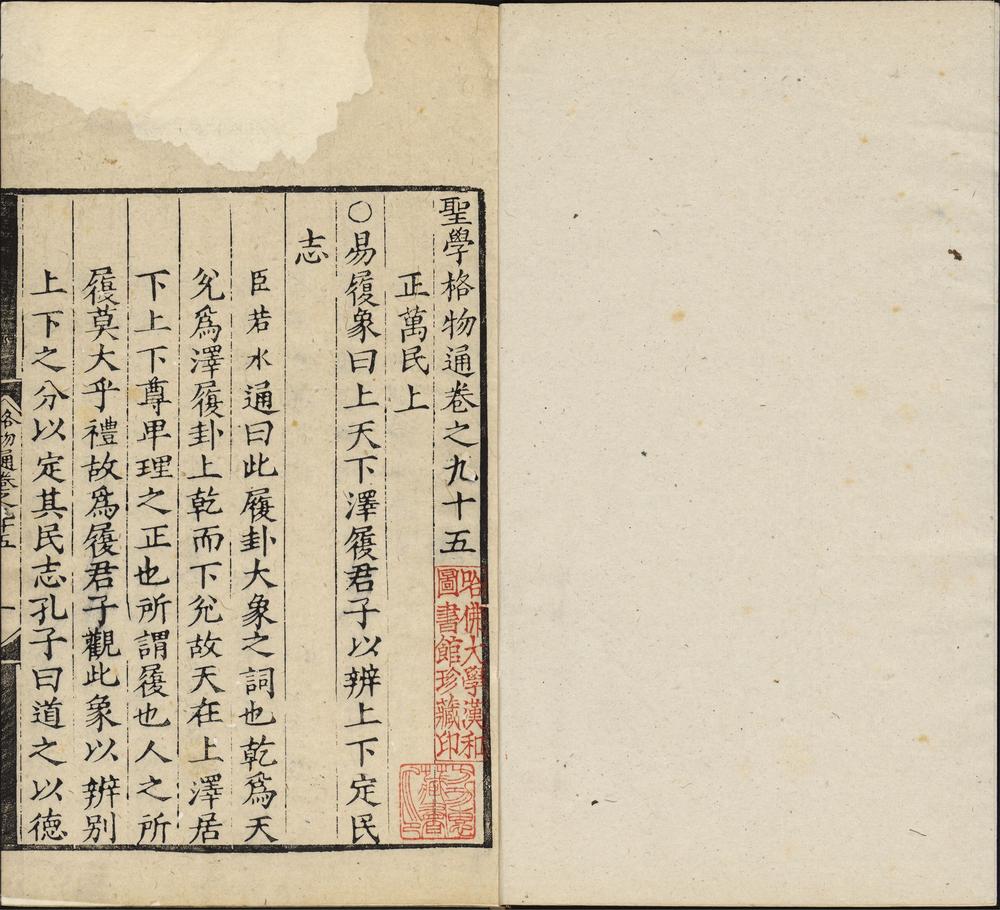 聖學格物通卷之九十五
正萬民上
○易履象曰上天下澤履君子以辨上下定民
志
臣若水通曰此履卦大象之詞也乾爲天
兊爲澤履卦上乾而下兊故天在上澤居
下上下尊卑理之正也所謂履也人之所
履莫大乎禮故爲履君子觀此象以辨別
上下之分以定其民志孔子曰道之以德
格物通卷之九十五
一
哈佛大學漢和
圖書館珍藏印
藏書